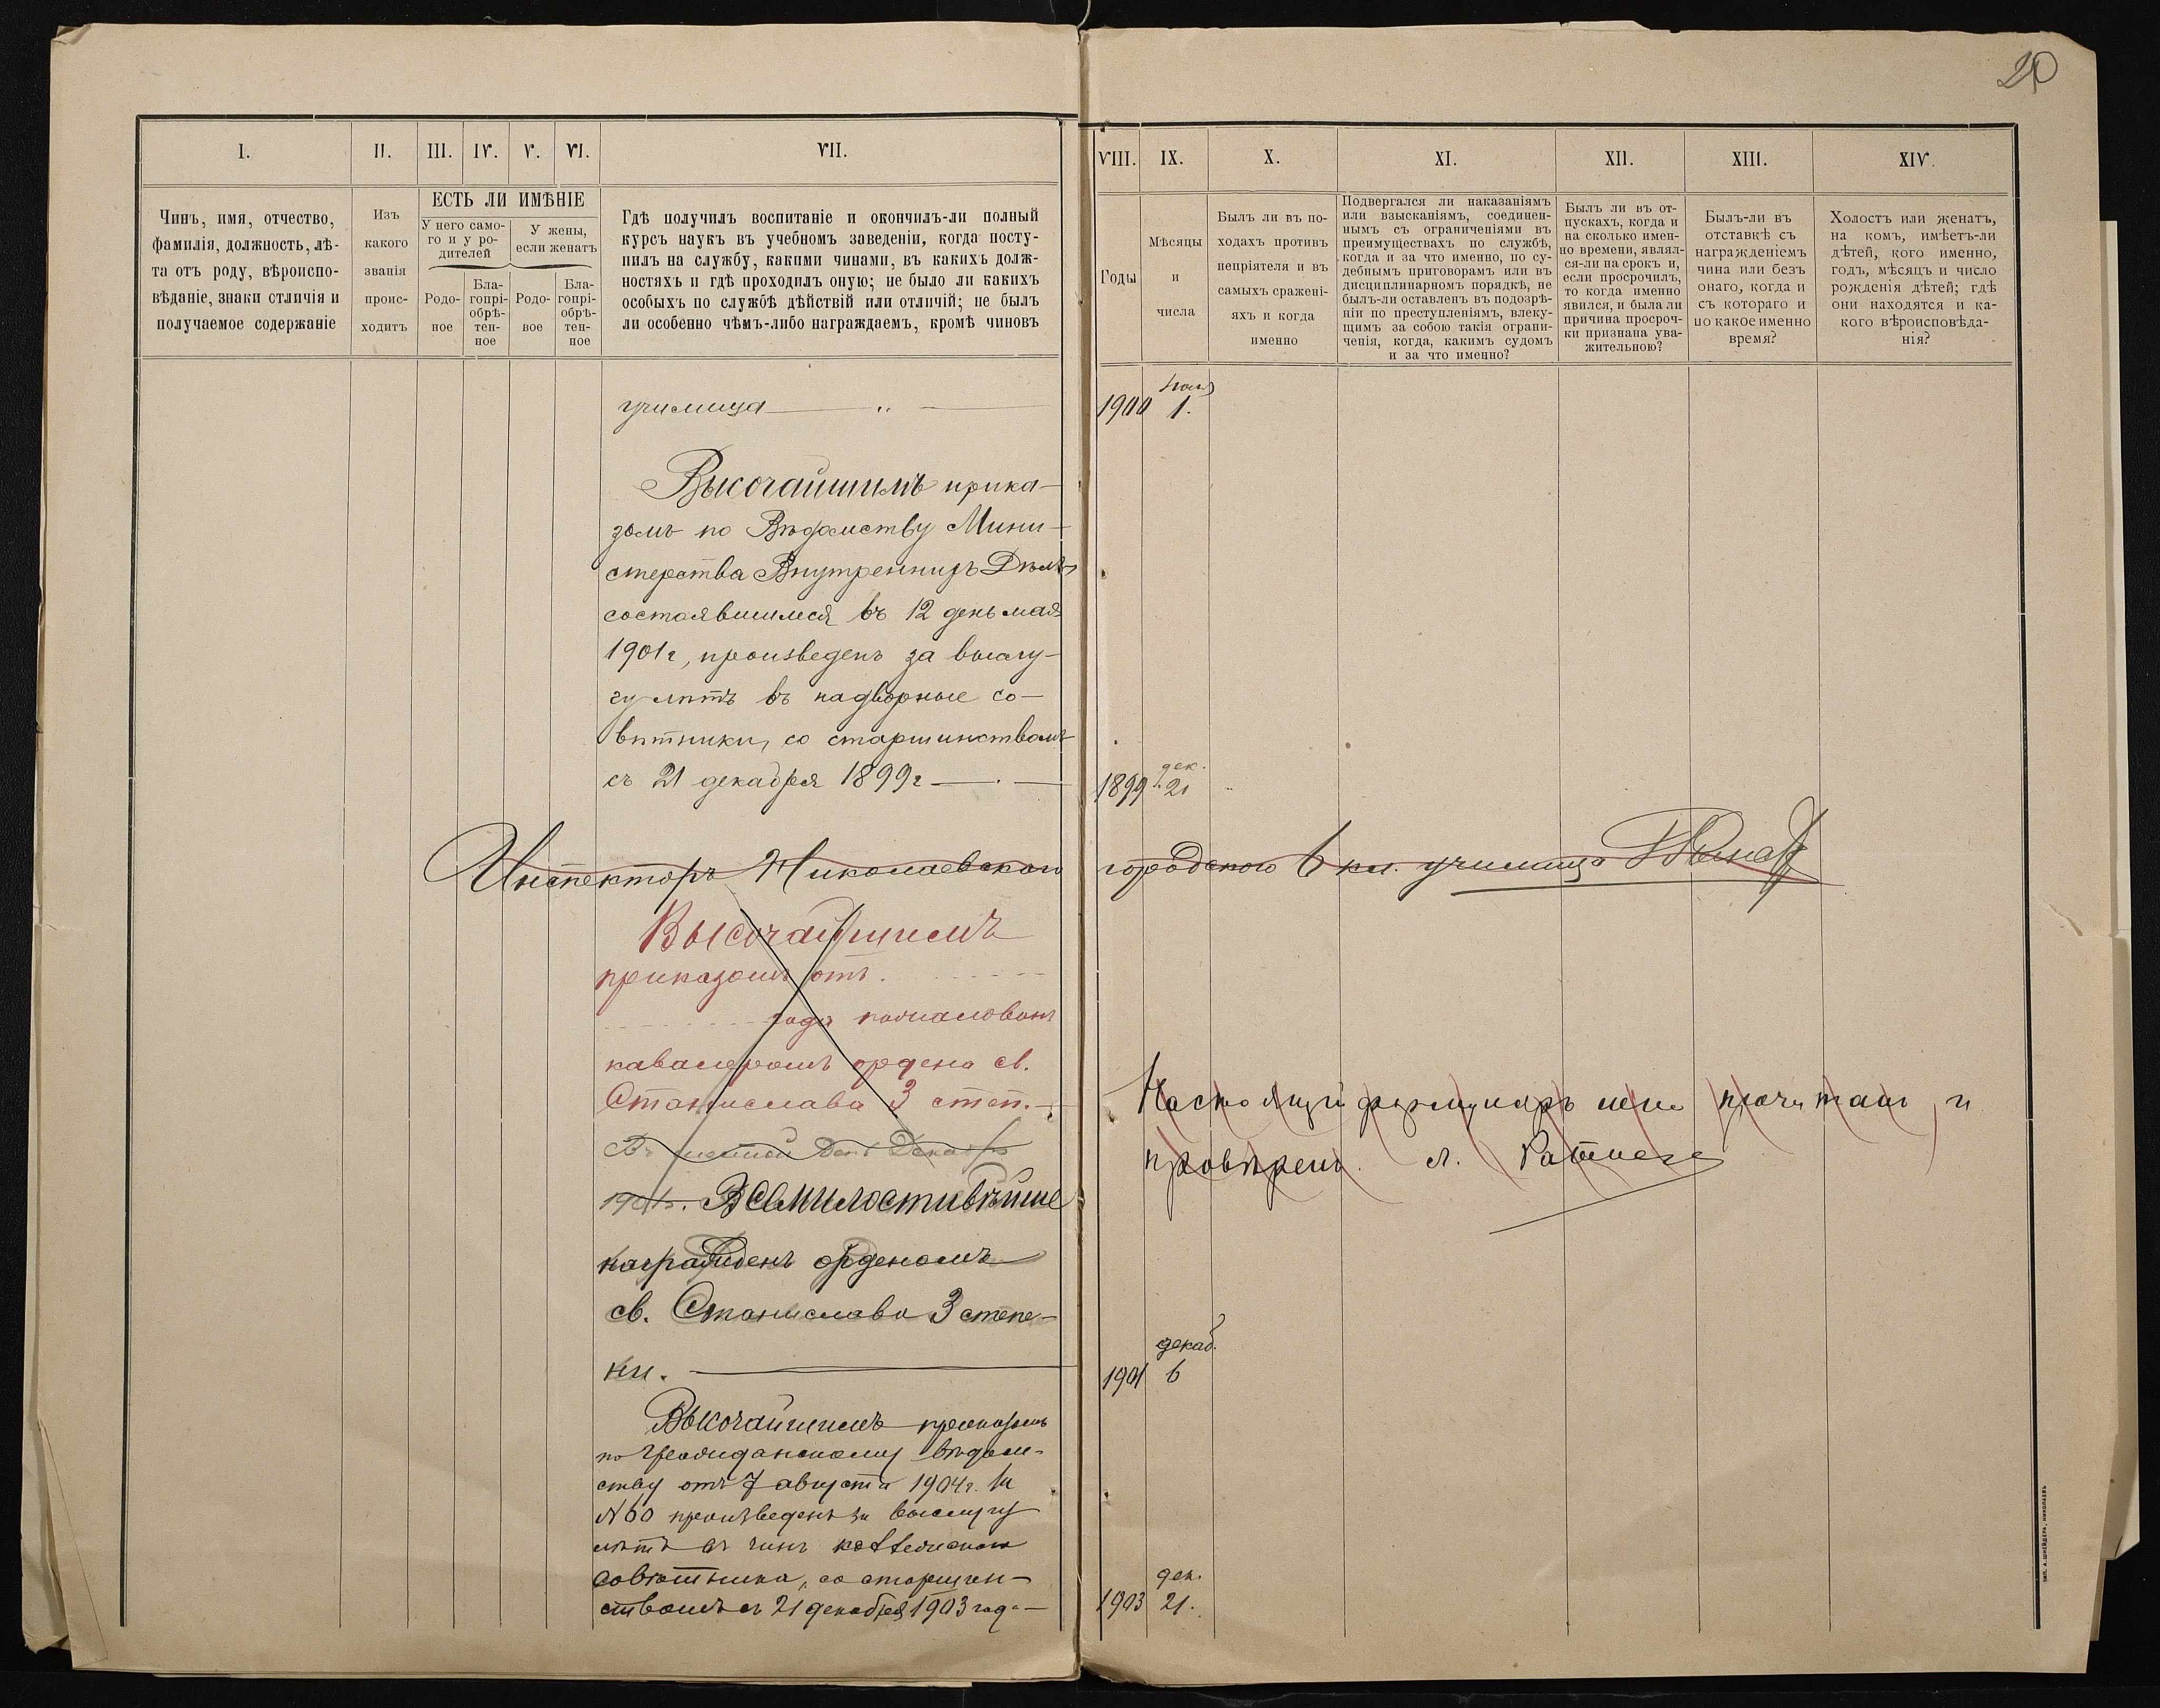 20
I.
II.
III.
IV.
V.
VI.
VII.
VIII.
IX.
X.
XI.
XII.
XIII.
XIV.
Чинъ, имя, отчество,
фамилія, должность, лѣ-
та отъ роду, вѣроиспо-
вѣданіе, знаки отличія и
получаемое содержаніе
Изъ
какого
званія
проис-
ходитъ
ЕСТЬ ЛИ ИМѢНІЕ
У него само-
го и у ро-
дителей
У жены,
если женатъ
Родо-
ное
Бла-
гопрі-
обрѣ-
тен-
ное
Родо-
вое
Бла-
гопрі-
обрѣ-
тен-
ное
Гдѣ получилъ воспитаніе и окончилъ-ли полный
курсъ наукъ въ учебномъ заведеніи, когда посту-
пилъ на службу, какими чинами, въ какихъ долж-
ностяхъ и гдѣ проходилъ оную; не было ли какихъ
особыхъ по службѣ дѣйствій или отличій; не былъ
ли особенно чѣмъ-либо награждаемъ, кромѣ чиновъ
Годы
Мѣсяцы
и
числа
Былъ ли въ по-
ходахъ противъ
непріятеля и въ
самыхъ сражені-
яхъ и когда
именно
Подвергался ли наказаніямъ
или взысканіямъ, соединен-
нымъ съ ограниченіями въ
преимуществахъ по службѣ,
когда и за что именно, по су-
дебнымъ приговорамъ или въ
дисциплинарномъ порядкѣ, не
былъ-ли оставленъ въ подозрѣ-
ніи по преступленіямъ, влеку-
щимъ за собою такія ограни-
ченія, когда, какимъ судомъ
и за что именно?
Былъ ли въ от-
пускахъ, когда и
на сколько имен-
но времени, являл-
ся-ли на срокъ и,
если просрочилъ,
то когда именно
явился, и была ли
причина просроч-
ки признана ува-
жительною?
Былъ-ли въ
отставкѣ съ
награжденіемъ
чина или безъ
онаго, когда и
съ котораго и
по какое именно
время?
Холостъ или женатъ,
на комъ, имѣетъ-ли
дѣтей, кого именно,
годъ, мѣсяцъ и число
рожденія дѣтей; гдѣ
они находятся и ка-
кого вѣроисповѣда-
нія?
училища
1900 1.
Высочайшимъ прика-
зомъ по Вѣдомству Мини-
стерства Внутреннихъ Дѣлъ,
состоявшимся въ 12 день мая
1901 г, произведенъ за выслу-
гу лѣтъ въ надворные со-
вѣтники, со старшинствомъ
съ 21 декабря 1899 г
дек.
1899 21
Инспекторъ Николаевскаго городского 6 кл. училища
Высочайшимъ
приказомъ отъ
года пожалованъ
кавалеромъ ордена св.
Станислава 3 степ.
Въ шестой день Декабря
1901 г. Всемилостивѣйше
награжденъ орденомъ
св. Станислава 3 степе-
ни.
декаб.
1901 6
Настоящій формуляръ мною прочитанъ и
провѣренъ.
Высочайшимъ приказомъ
по Гражданскому вѣдом-
ству отъ 7 августа 1904 г. за
№ 60 произведенъ за выслугу
лѣтъ въ чинъ коллежскаго
совѣтника, со старшин-
ствомъ съ 21 декабря 1903 года
дек.
1903 21.